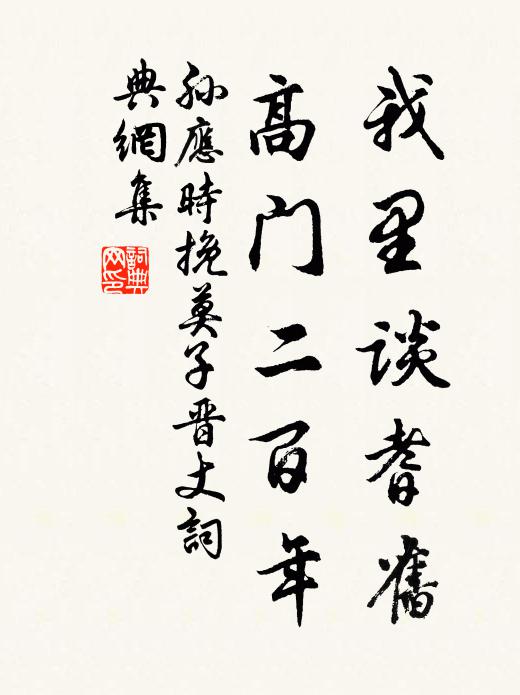 我里談耆舊
高門二百年
孫應時挽莫子晋丈詞
典網集
詞典網印